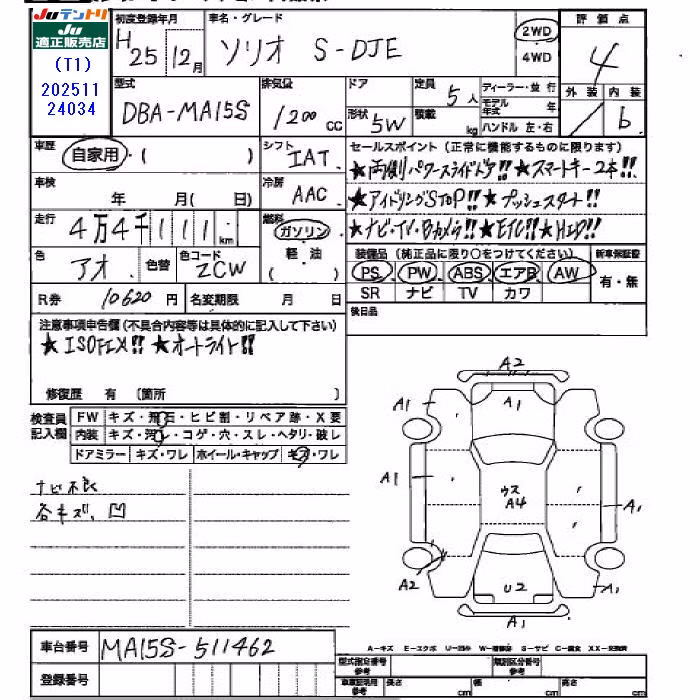 Juテントリ
Ju
適正販売店
(T1)
202511
24034
初度登録年月
H25 12月
車名・グレード
ソリオ S-DJE
2WD
4WD
評価点
4
型式
DBA-MA15S
排気量
1200 cc
ドア
形状
5W
定員
5人
積載
kg
ディーラー・並行
モデル年式 年
ハンドル 左・右
外装 内装
b
車歴
自家用・( )
シフト
IAT
セールスポイント(正常に機能するものに限ります)
★両側パワースライドドア!! ★スマートキー2本!!
★アイドリングSTOP!! ★プッシュスタート!!
★ナビ・TV・Bカメラ!! ★ETC!! ★HID!!
車検
年 月( 日)
冷房
AAC
走行
4万4千111km
燃料
ガソリン
軽・油
( )
色
アオ
色替
色コード
ZCW
装備品(純正品に限り○をつけてください)
新車保証書
PS PW ABS エアB AW
有・無
SR ナビ TV カワ
R券 10620円
名変期限 月 日
後日品
注意事項申告欄(不具合内容等は具体的に記入して下さい)
★ISOFIX!! ★オートライト!!
修復歴 有 〔箇所 〕
検査員
記入欄
FW キズ・飛石・ヒビ割・リペア跡・X要
内装 キズ・汚レ・コゲ・穴・スレ・ヘタリ・破レ
ドアミラー キズ・ワレ ホイール・キャップ キズ・ワレ
ナビ不良
各キズ、凹
A2
A1
A1
A1
ウス
A4
A1
A2
U2
A1
A1
車台番号 MA15S-511462
登録番号
A-キズ E-エクボ U-凹み W-補修跡 S-サビ C-腐食 XX-交換済
型式指定番号
参考
類別区分番号
参考
車庫証明用
参考
長さ cm
幅 cm
高さ cm